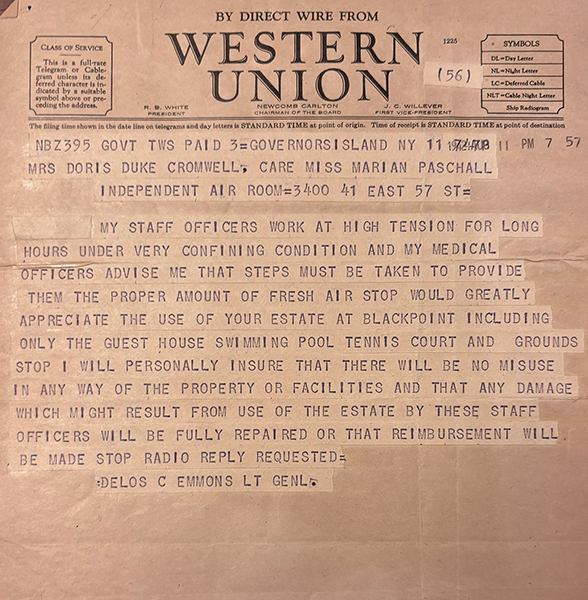 BY DIRECT WIRE FROM
WESTERN
UNION
1225
(56)
CLASS OF SERVICE
This is a full-rate
Telegram or Cable-
gram unless its de-
ferred character is in-
dicated by a suitable
symbol above or pre-
ceding the address.
R. B. WHITE
PRESIDENT
NEWCOMB CARLTON
CHAIRMAN OF THE BOARD
J. C. WILLEVER
FIRST VICE-PRESIDENT
SYMBOLS
DL=Day Letter
NL=Night Letter
LC=Deferred Cable
NLT=Cable Night Letter
Ship Radiogram
The filing time shown in the date line on telegrams and day letters is STANDARD TIME at point of origin. Time of receipt is STANDARD TIME at point of destination
NBZ395 GOVT TWS PAID 3=GOVERNORSISLAND NY 11 11 PM 7 57
MRS DORIS DUKE CROMWELL, CARE MISS MARIAN PASCHALL
INDEPENDENT AIR ROOM=3400 41 EAST 57 ST=
MY STAFF OFFICERS WORK AT HIGH TENSION FOR LONG
HOURS UNDER VERY CONFINING CONDITION AND MY MEDICAL
OFFICERS ADVISE ME THAT STEPS MUST BE TAKEN TO PROVIDE
THEM THE PROPER AMOUNT OF FRESH AIR STOP WOULD GREATLY
APPRECIATE THE USE OF YOUR ESTATE AT BLACKPOINT INCLUDING
ONLY THE GUEST HOUSE SWIMMING POOL TENNIS COURT AND GROUNDS
STOP I WILL PERSONALLY INSURE THAT THERE WILL BE NO MISUSE
IN ANY WAY OF THE PROPERTY OR FACILITIES AND THAT ANY DAMAGE
WHICH MIGHT RESULT FROM USE OF THE ESTATE BY THESE STAFF
OFFICERS WILL BE FULLY REPAIRED OR THAT REIMBURSEMENT WILL
BE MADE STOP RADIO REPLY REQUESTED=
:DELOS C EMMONS LT GENL.